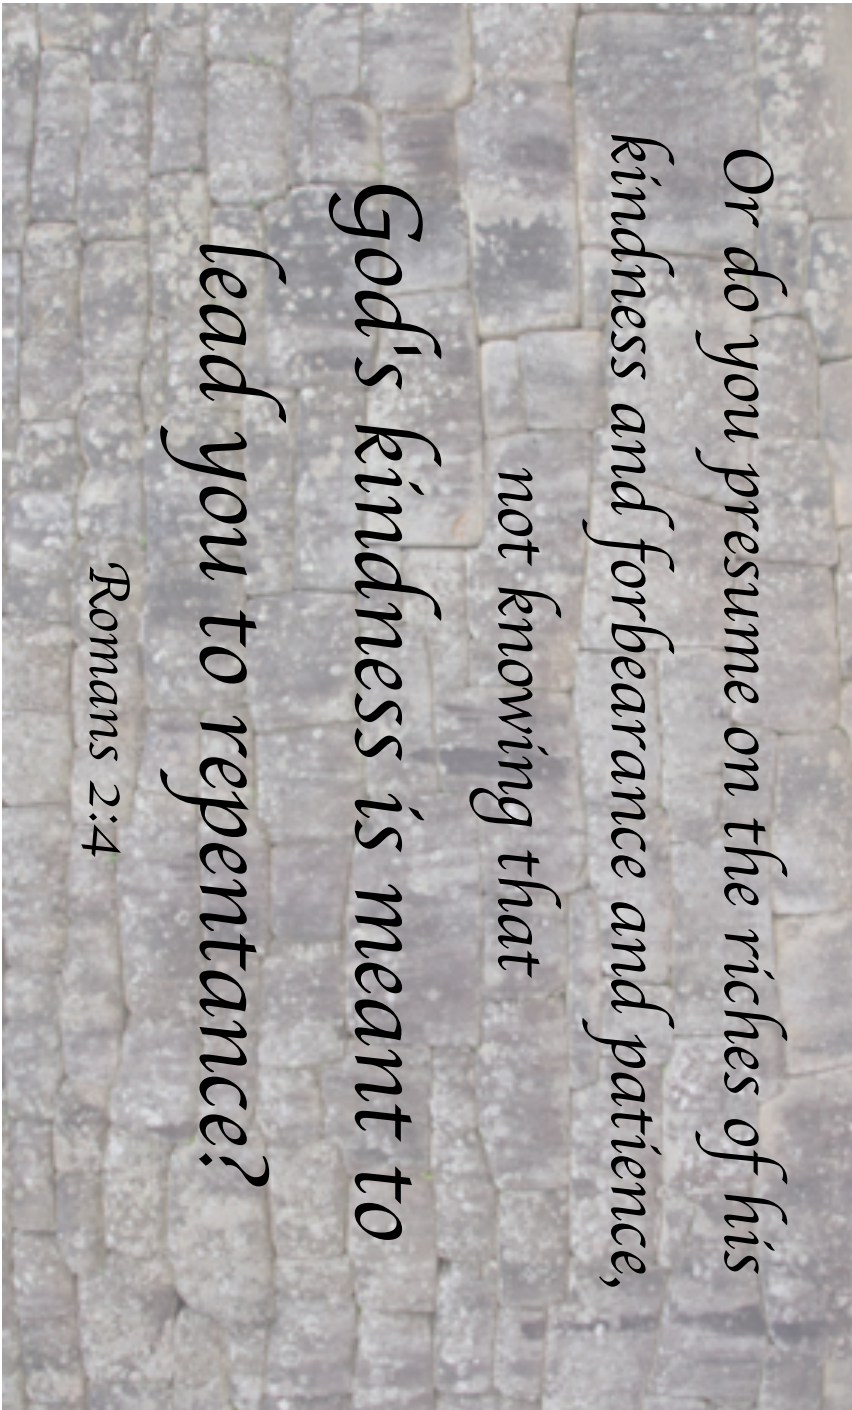 Or do you presume on the riches of his
kindness and forbearance and patience,
not knowing that
God's kindness is meant to
lead you to repentance?
Romans 2:4